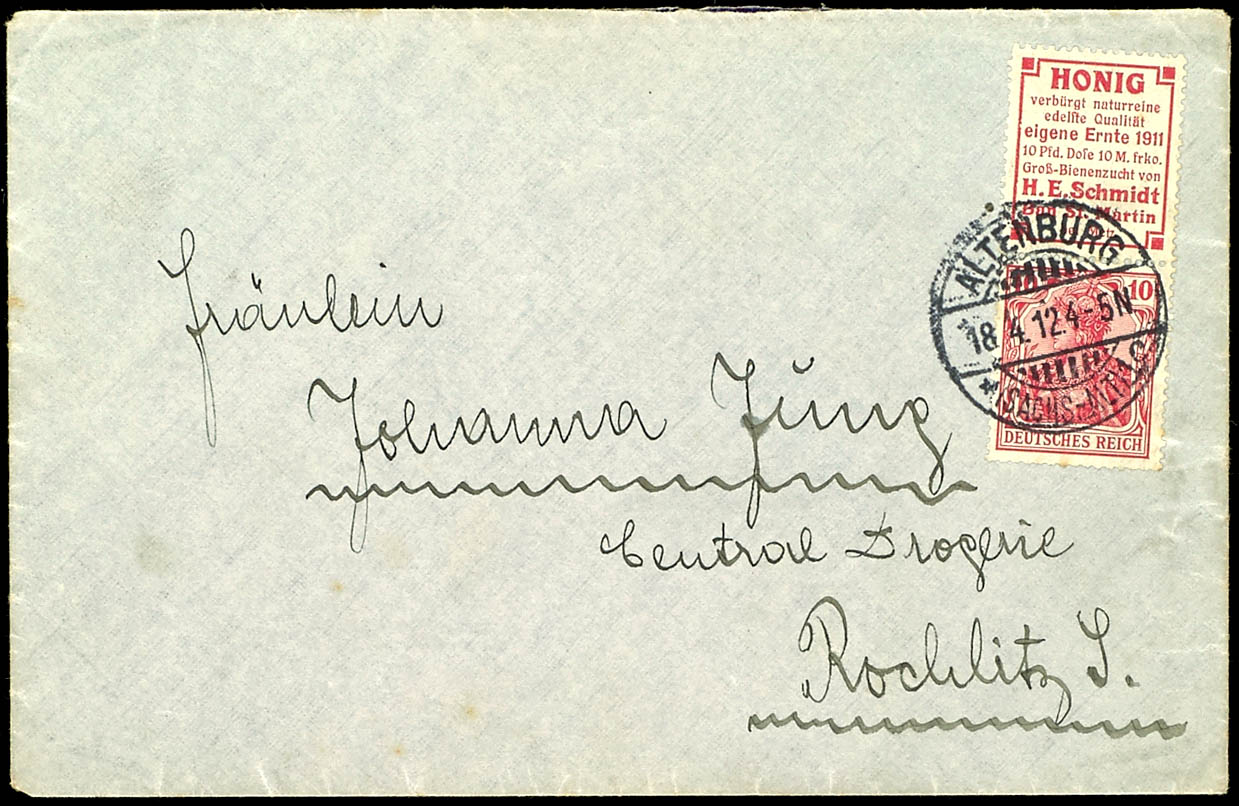 HONIG
verbürgt naturreine
edelste Qualität
eigene Ernte 1911
10 Pfd. Dose 10 M. frko.
Groß-Bienenzucht von
H. E. Schmidt
Bad St. Martin
ALTENBURG
10
18.4.12.4-5N
* (SACHS.-ALTB.)
DEUTSCHES REICH
Fräulein
Johanna Jung
Central Drogerie
Rochlitz S.